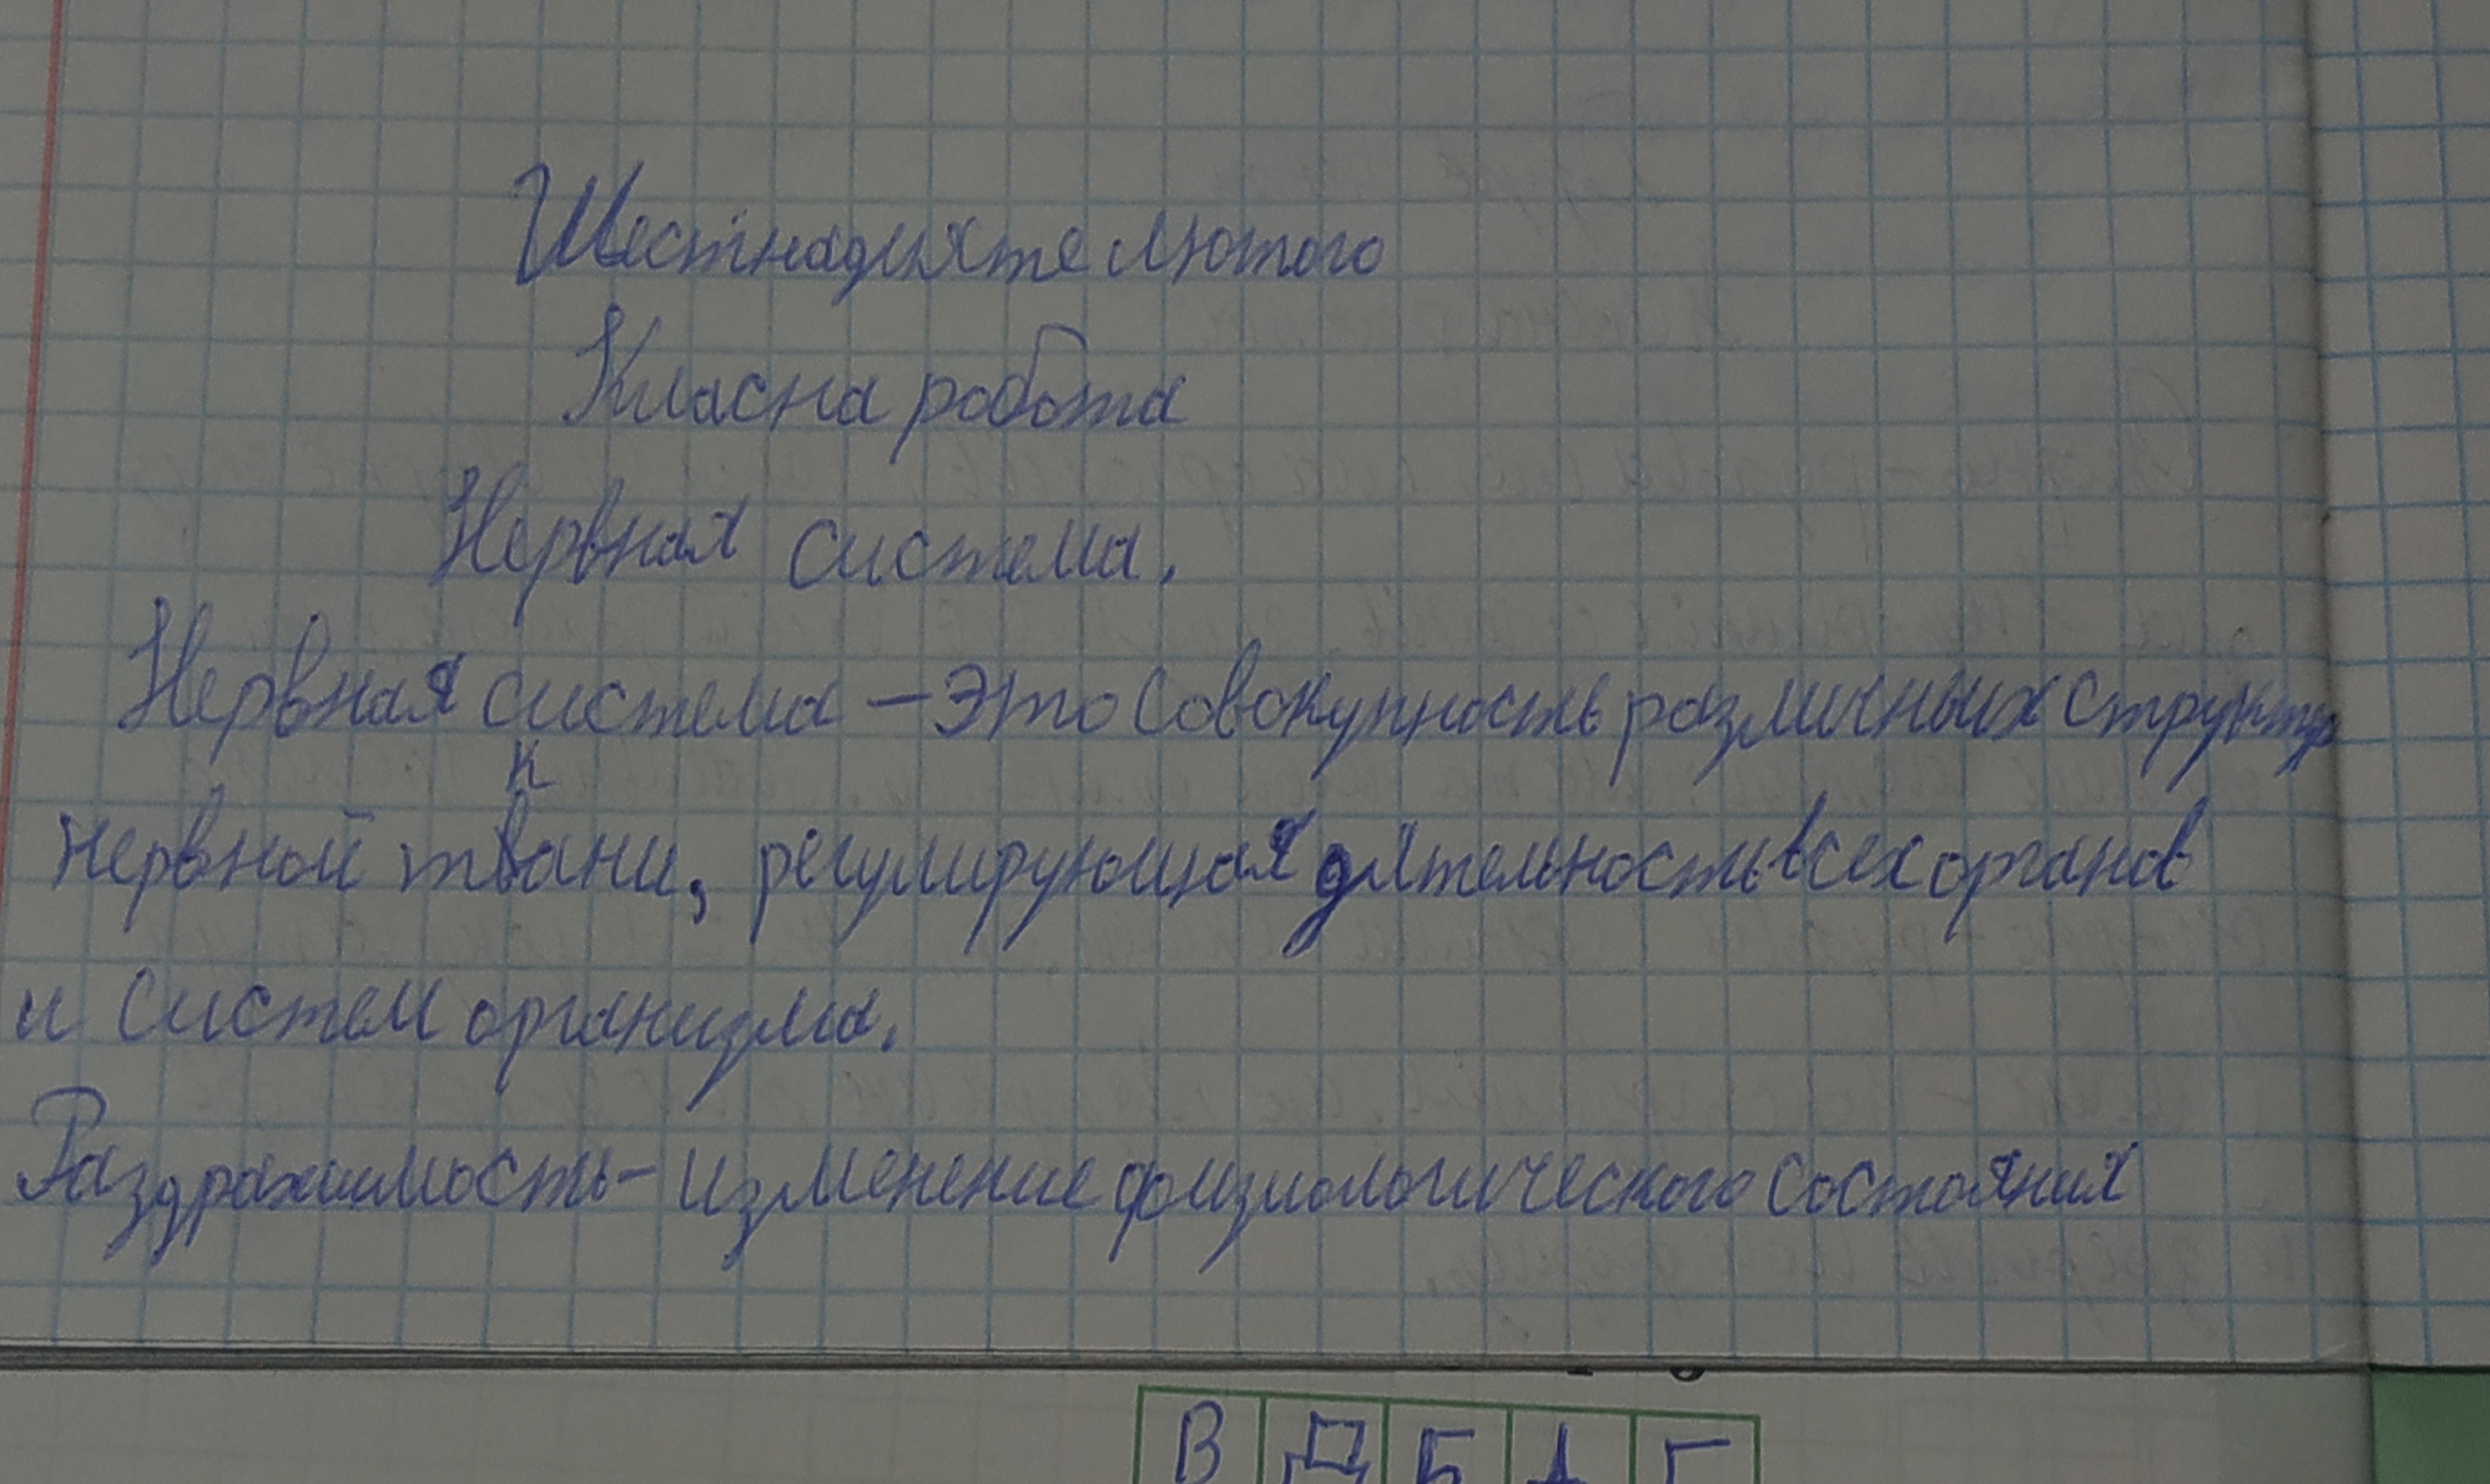 Шестнадцяте лютого
Класна робота
Нервная система.
Нервная система – это совокупность различных структур
нервной ткани, регулирующая дятельность всех органов
и систем организма.
Раздражимость - изменение физиологического состояния
В Д Б А Г